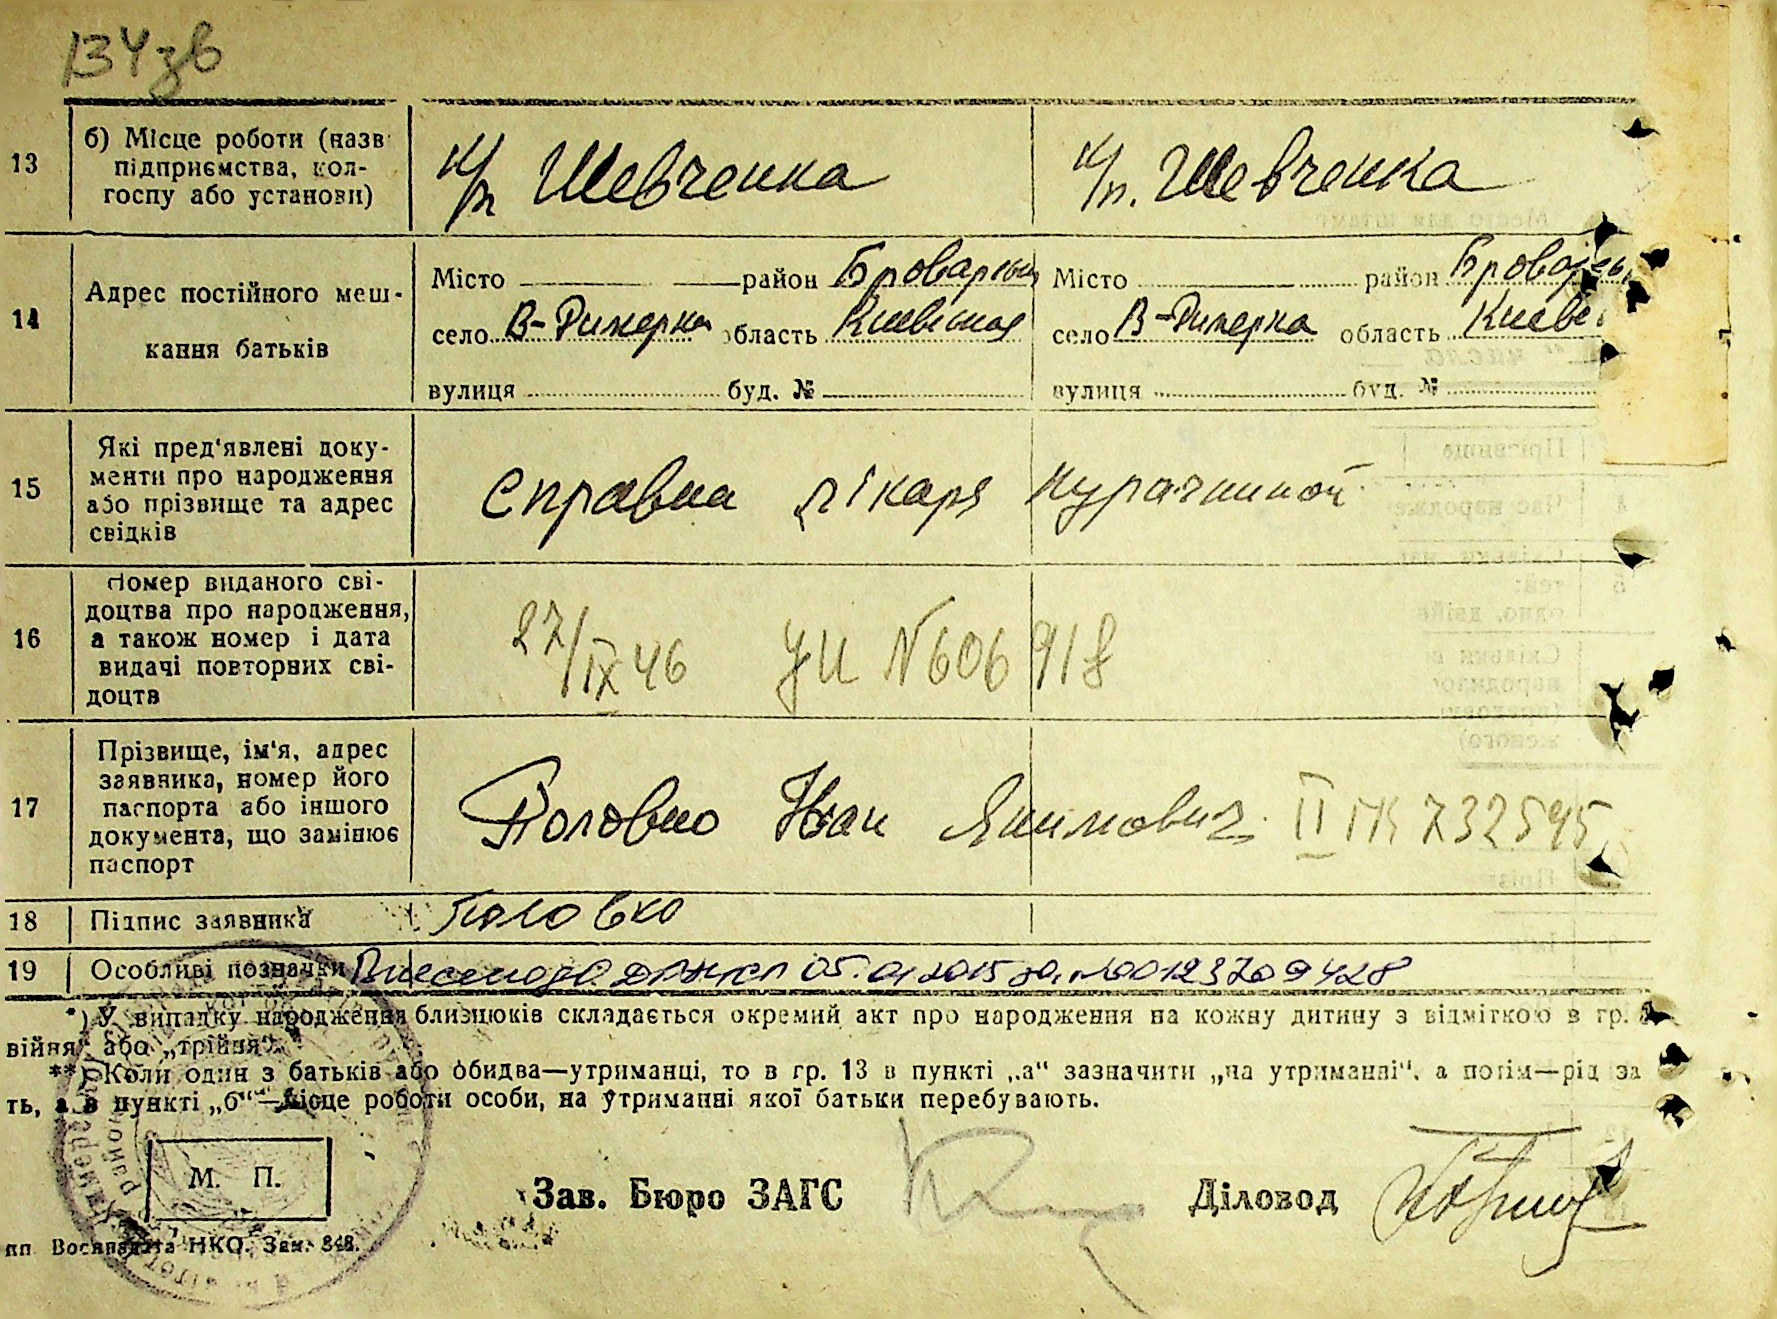 134зв
13 б) Місце роботи (назв к/п Шевченка к/п. Шевченка
підприємства, кол-
госпу або установи)
14 Адрес постійного меш- кання батьків
Місто район Броварськ Місто район Броварськ
село В-Димерка область Киевская село В-Димерка область Киевс
вулиця буд. № вулиця буд. №
15 Які пред'явлені доку-
менти про народження
або прізвище та адрес
свідків
Справка лікаря
16 Номер виданого сві-
доцтва про народження,
а також номер і дата
видачі повторних сві-
доцтв
27/IX 46 УИ N 606918
17 Прізвище, ім'я, адрес
заявника, номер його
паспорта або іншого
документа, що замінює
паспорт
Половко Иван Якимович II ПК 732545
18 Підпис заявника Половко
19 Особливі позначки 05.01.2015 00123709428
*) У випадку народження близнюків складається окремий акт про народження на кожну дитину з відміткою в гр.
війня" або „трійня".
**) Коли один з батьків або обидва—утриманці, то в гр. 13 в пункті „а" зазначити „на утриманні", а потім—рід за
ть, а в пункті „б"—місце роботи особи, на утриманні якої батьки перебувають.
М. П.
Зав. Бюро ЗАГС Діловод
НКО. Зам. 848.